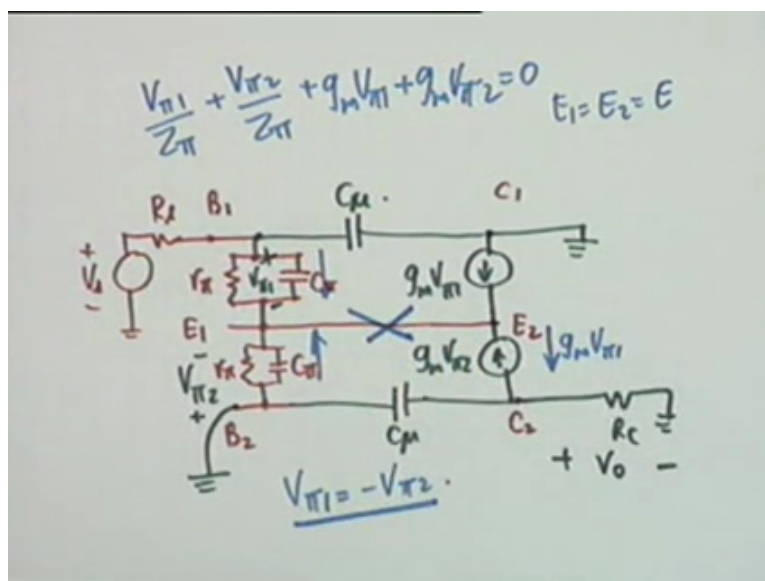 Vπ1/Zπ + Vπ2/Zπ + gmVπ1 + gmVπ2 = 0
E1 = E2 = E
Rs B1 Cμ. C1
+ Vs -
rπ + Vπ1 - Cπ gmVπ1
E1 E2
- Vπ2 + rπ Cπ gmVπ2 gmVπ1
B2 Cμ C2 RC
+ V0 -
Vπ1 = -Vπ2.